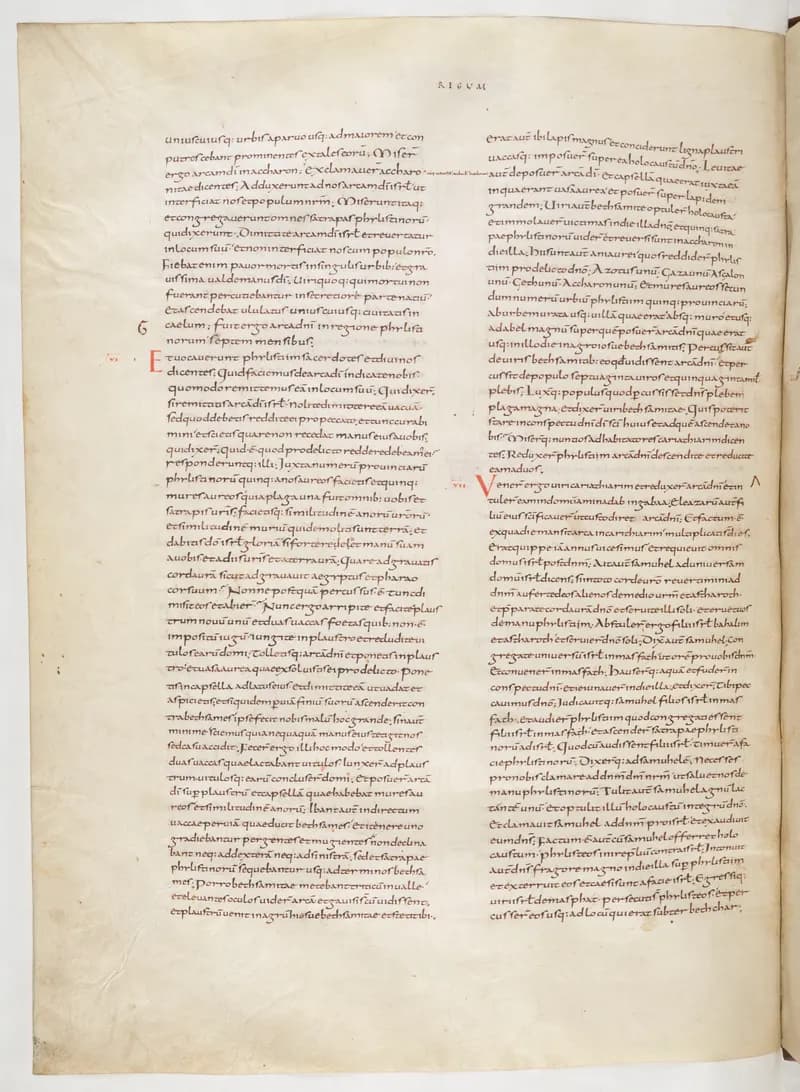 REGUM
uniuscuiusq: urbis aparuo usq: admaiorem etcon
putrescebant prominentes extales eorū; Miser̄
ergo arcam dī inaccharon; Exclamauer̄ accharo
nitae dicentes; Adduxerunt adnos arcam dī isrł ut
interficiat nos etpopulum nrm̄; Miserunt itaq:
etcongregauerunt omnes satrapas phylistinorū
quidixerunt; Dimittite arcam dī isrł etreuertatur
inlocum suū; etnon interficiat nos cum populo nro;
Fiebat enim pauor mortis insingulis urbib: etgra
uissima ualde manus dī; Uiri quoq: qui mortui non
fuerant percutiebantur insecretiore parte natiū;
Etascendebat ululatus uniuscuiusq: ciuitatis in
caelum; fuit ergo arca dnī inregione phylisti
norum septem mensibus;
Etuocauerunt phylistiim sacerdotes etdiuinos
dicentes; Quid faciemus de arca dī indicate nobis
quomodo remittemus eā inlocum suū; Quidixer̄;
siremittitis arcā dī isrł nolite dimittere eā uacuā
sed quod debetis reddite ei propeccato, ettunc curabi
mini etscietis quare non recedat manus eius auobis;
quidixer̄; Quid ē quod prodelicto reddere debeam ei
responderuntq: illi; Iuxta numerū prouinciarū
phylistinorū quinq: anos aureos facietis etquinq:
mures aureos quia plaga una fuit omnib: uobis et
satrapis uris; facietisq: similitudinē anorū urorū
etsimilitudinē muriū qui demoliti sunt terrā; et
dabitis dō isrł gloriā siforte releuet manū suam
auobis etadiis uris etaterra urā; Quare adgrauatis
corda urā sicut adgrauauit aegyptus etpharao
cor suum; Nonne postquā percussus ē tunc di
misit eos etabier̄; Nunc ergo arripite etfacite plaus
trum nouū unū etduas uaccas foetas quib: non ē
impositū iugū iungite inplaustro etrecludite ui
tulos earū domi; Tolletisq: arcā dnī etponetis inplaus
tro etuasa aurea quae exsoluistis ei prodelicto pone
tis incapsella adlatus eius etdimittite eā utuadat et
aspicietis etsiquidem p uiā finiū suorū ascenderit con
tra bethsames ipse fecit nobis malū hoc grande; sin aut̄
minime sciemus quia nequaquā manus eius tetigit nos
sed casu accidit; Fecer̄ ergo illi hoc modo ettollentes
duas uaccas quae lactabant uitulos iunxer̄ adplaus
trum uitulosq: earū concluser̄ domi; Etposuer̄ arcā
dī sup plaustrū etcapsellā quae habebat mures au
reos etsimilitudinē anorū; Ibant aut̄ indirectum
uaccae p uiā quae ducit bethsames; etitinere uno
gradiebantur pergentes etmugientes etnon declina
bant neq: addexterā neq: adsinistrā; sed etsatrapae
phylistinorū sequebantur usq: adterminos bethsa
mes; Porro bethsamitae metebant triticū inualle
eteleuantes oculos uider̄ arcā etgauisi sūt cū uidissent;
etplaustrū uenit inagrū iosue bethsamitae etstetit ibi.
erat aut̄ ibi lapis magnus etconciderunt ligna plaustri
uaccasq: imposuer̄ super ea holocaustū dnō; Leuitae
aut̄ deposuer̄ arcā dī; Etcapsellā quae erat iuxta eā
inqua erant uasa aurea etposuer̄ super lapidem
grandem; Uiri aut̄ bethsamitae optuler̄ holocausta
etimmolauer̄ uictimas indie illa dnō; etquinq: satra
pae phylistinorū uider̄ etreuersi sunt inaccharon in
die illa; Hi sunt aut̄ ani aurei quos reddider̄ phylis
tiim prodelicto dnō; Azotus unū; Gaza unū; Ascalon
unū; Geth unū; Accharon unū; Etmures aureos secun
dum numerū urbiū phylistiim quinq: prouinciarū;
Ab urbe murata usq: uillā quae erat absq: muro etusq:
adabel magnū superquē posuer̄ arcā dnī quae erat
usq: inillo die inagro iosue bethsamitis; Percussit aut̄
de uiris bethsamitab: eo qd uidissent arcā dnī etper
cussit depopulo septuaginta uiros etquinquaginta mił
plebis; Luxq: populus quod pcussisset dns̄ plebem
plaga magna; etdixer̄ uiri bethsamitae; Quis poterit
stare inconspectu dnī dī scī huius etadquē ascendet ano
bis; Miserq: nuntios adhabitatores cariathiarim dicen
tes; Reduxer̄ phylistiim arcā dnī descendite etreducite
eam aduos;
Uener̄ ergo uiri cariathiarim etreduxer̄ arcā dnī etin
tuler̄ eam indomū aminadab ingabaa; Eleazarū aut̄ fi
liū eius scīficauer̄ utcustodiret arcā dnī; Etfactum ē
exqua die mansit arca incariathiarim multiplicati s dies;
Erat quippe iā annus uicesimus etrequieuit omnis
domus isrł post dnm̄; Ait aut̄ samuhel aduniuersam
domū isrł dicens; siintoto corde uro reuertimini ad
dnm̄ auferte deos alienos demedio urm̄ etastharoth
etpraeparate corda urā dnō etseruite illi soli. eteruet uos
demanu phylistiim; Abstuler̄ ergo filii isrł bahalim
etastharoth etseruier̄ dnō soli; Dixit aut̄ samuhel; Con
gregate uniuersū isrł inmasfath utorē prouobis dnm̄
Etconuener̄ inmasfath; Hauserq: aquā etfuder̄ in
conspectu dnī; etieiunauer̄ indie illa; etdixer̄; Tibi pec
cauimus dnē; Iudicauitq: samuhel filios isrł inmas
fath; etaudier̄ phylistiim quod congregati essent
filii isrł inmasfath etascender̄ satrapae phylisti
norū adisrł; Quod cū audissent filii isrł timuer̄ afa
cie phylistinorū; Dixerq: adsamuhelē; Ne cesses
pronobis clamare addnm̄ dm̄ nrm̄ utsaluet nos de
manu phylistinorū; Tulit aut̄ samuhel agnū lac
tantē unū; Etoptulit illū holocaustū integrū dnō;
Etclamauit samuhel addnm̄ pro isrł etexaudiuit
eum dns; Factum ē aut̄ cū samuhel offerret holo
caustum. phylisteos inire pliū contra isrł; Intonuit
aut̄ dns fragore magno indie illa sup phylistiim
etexterruit eos etcaesi sunt afacie isrł; Egressiq:
uiri isrł demasphat. persecuti s phylisteos etper
cusser̄ eos usq: adlocū qui erat subter bethchar;